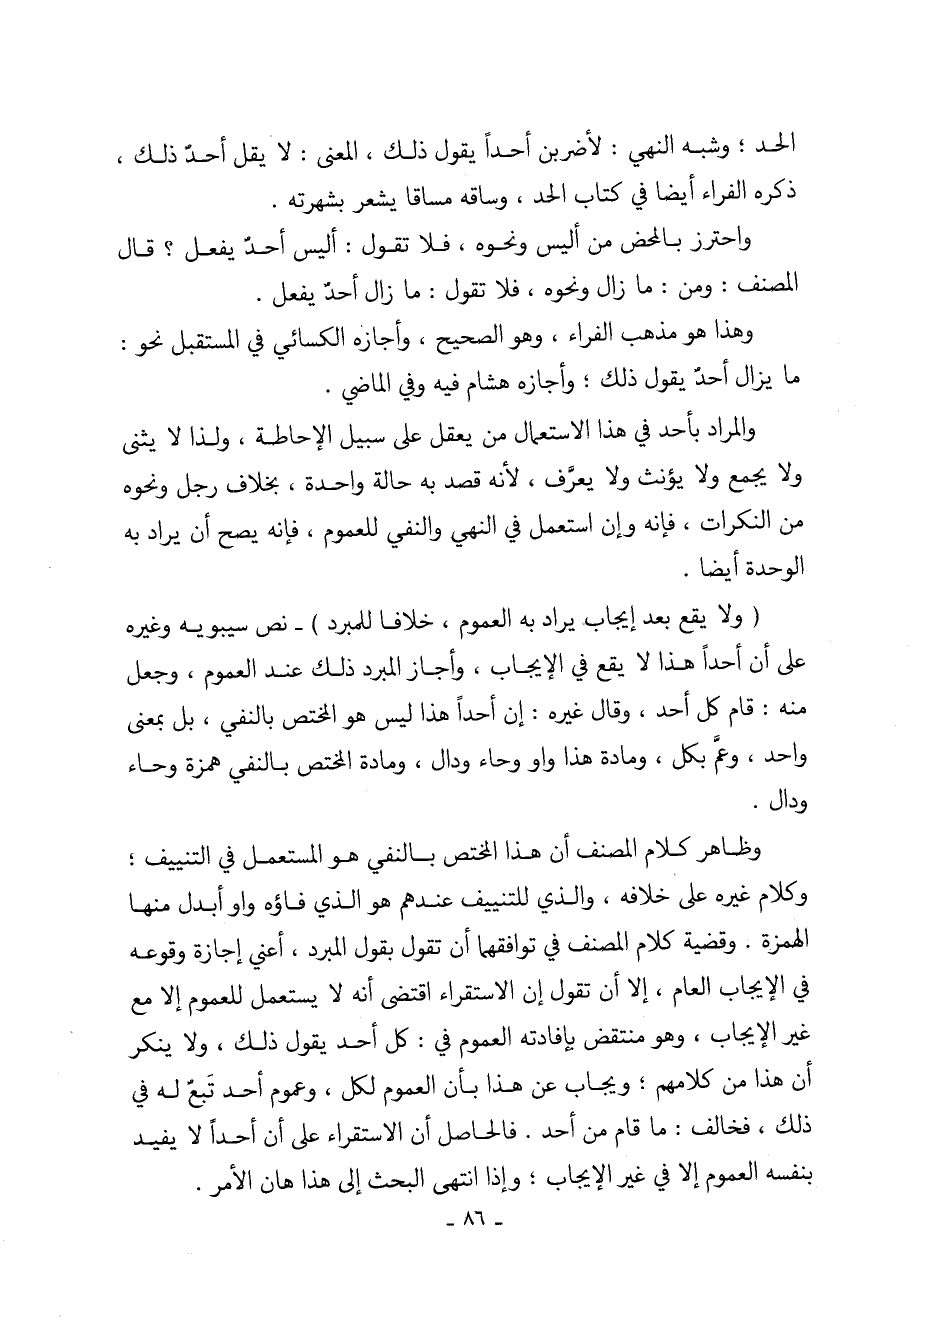 الحد ؛ وشبه النهي : لأضربن أحداً يقول ذلك ، المعنى : لا يقل أحدٌ ذلك ،
ذكره الفراء أيضا في كتاب الحد ، وساقه مساقا يشعر بشهرته .
واحترز بالمحض من أليس ونحوه ، فلا تقول : أليس أحدٌ يفعل ؟ قال
المصنف : ومن : ما زال ونحوه ، فلا تقول : ما زال أحدٌ يفعل .
وهذا هو مذهب الفراء ، وهو الصحيح ، وأجازه الكسائي في المستقبل نحو :
ما يزال أحدٌ يقول ذلك ؛ وأجازه هشام فيه وفي الماضي .
والمراد بأحد في هذا الاستعمال من يعقل على سبيل الإحاطة ، ولذا لا يثنى
ولا يجمع ولا يؤنث ولا يعرَّف ، لأنه قصد به حالة واحدة ، بخلاف رجل ونحوه
من النكرات ، فإنه وإن استعمل في النهي والنفي للعموم ، فإنه يصح أن يراد به
الوحدة أيضا .
( ولا يقع بعد إيجاب يراد به العموم ، خلافا للمبرد ) ـ نص سيبويه وغيره
على أن أحداً هذا لا يقع في الإيجاب ، وأجاز المبرد ذلك عند العموم ، وجعل
منه : قام كل أحد ، وقال غيره : إن أحداً هذا ليس هو المختص بالنفي ، بل بمعنى
واحد ، وعمَّ بكل ، ومادة هذا واو وحاء ودال ، ومادة المختص بالنفي همزة وحاء
ودال .
وظاهر كلام المصنف أن هذا المختص بالنفي هو المستعمل في التنييف ؛
وكلام غيره على خلافه ، والذي للتنييف عندهم هو الذي فاؤه واو أبدل منها
الهمزة . وقضية كلام المصنف في توافقها أن تقول بقول المبرد ، أعني إجازة وقوعه
في الإيجاب العام ، إلا أن تقول إن الاستقراء اقتضى أنه لا يستعمل للعموم إلا مع
غير الإيجاب ، وهو منتقض بإفادته العموم في : كل أحد يقول ذلك ، ولا ينكر
أن هذا من كلامهم ؛ ويجاب عن هذا بأن العموم لكل ، وعموم أحد تَبعٌ له في
ذلك ، فخالف : ما قام من أحد . فالحاصل أن الاستقراء على أن أحداً لا يفيد
بنفسه العموم إلا في غير الإيجاب ؛ وإذا انتهى البحث إلى هذا هان الأمر .
ـ ٨٦ ـ